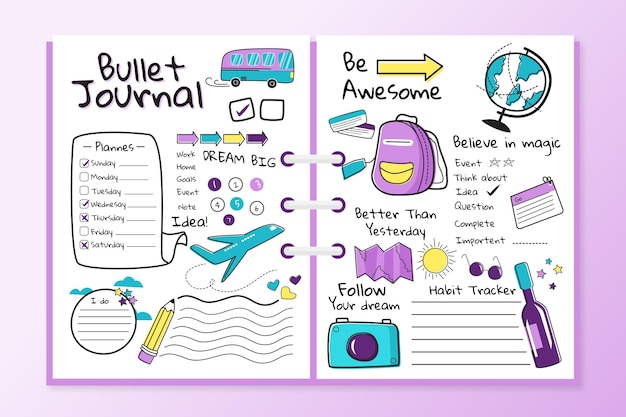 Bullet
Journal
Plannes
Sunday
Monday
Tuesday
Wednesday
Thursday
Friday
Saturday
Work
Home
Goals
Event
Note
DREAM BIG
1 2 3 4
5 6 7 8
Idea!
I do
Be
Awesome
Believe in magic
Event
Think about
Idea
Question
Complete
Importent
Better Than
Yesterday
Follow
Your dream
Habit Tracker